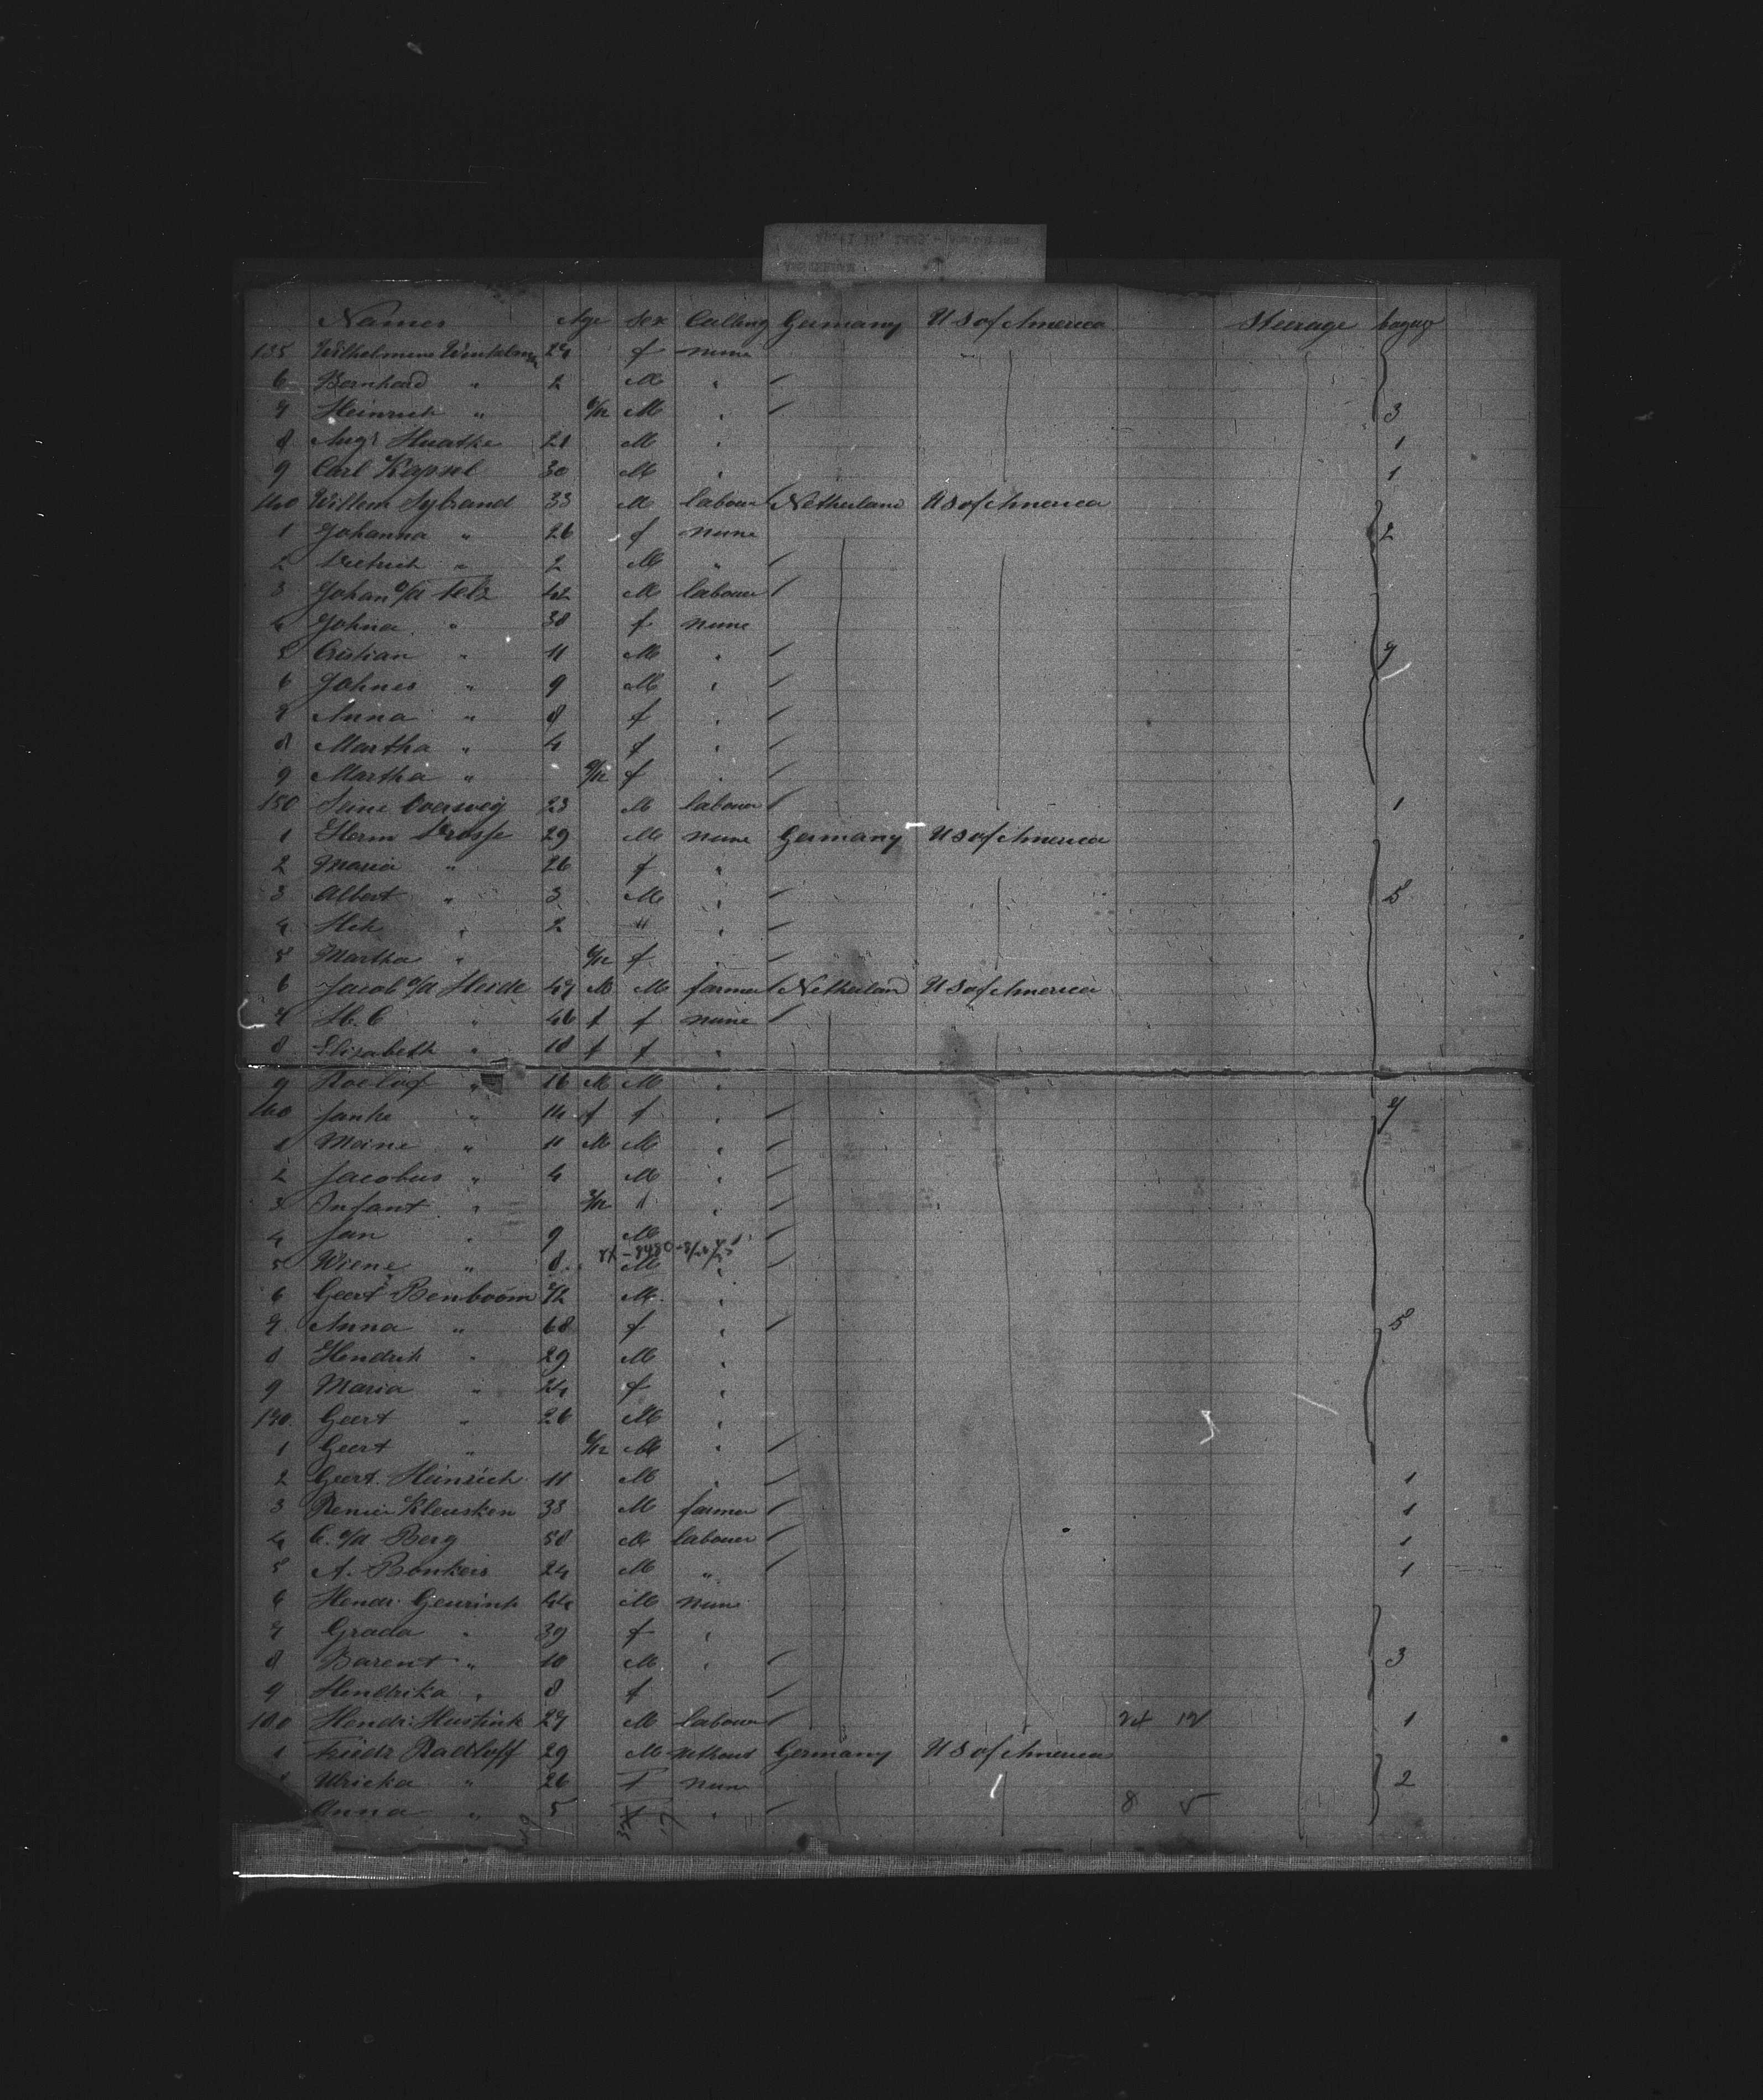 Names Age Sex Calling Germany U S of America Steerage bagage
135 Wilhelmine 24 f none
6 Bernhard " 2 M "
7 Heinrich " 6/12 M " 3
8 Aug! 21 M " 1
9 Carl Kapsel 30 M " 1
140 Willem Sybrand 33 M labour Netherland U S of America
1 Johanna " 26 f none 2
2 Dietrich " 2 M "
3 Johan v/d Felz 42 M labour
4 Johna " 38 f none
5 Cristian " 11 M " 7
6 Johnes " 9 M "
7 Anna " 8 f "
8 Martha " 4 f "
9 Martha " 9/12 f "
150 Overweg 23 M labour 1
1 Herm Drosse 29 M none Germany U S of America
2 Maria " 26 f "
3 Albert " 3 M " 5
4 Hch " 2 " "
5 Martha " 6/12 f "
6 Jacob v/d Heide 47 M M farmer Netherland U S of America
7 H. C " 46 f f none
8 Elizabeth " 18 f f "
9 Roelof " 16 M M "
160 Janke " 14 f f " 7
1 Meine " 11 M M "
2 Jacobus " 4 M "
3 Infant " 3/12 " "
4 Jan " 9 M "
5 Wiene " 8 M "
6 Geert Benboom 72 M "
7 Anna " 68 f " 5
8 Hendrik " 29 M "
9 Maria " 24 f "
170 Geert " 26 M "
1 Geert " 6/12 M "
2 Geert Heinrich 11 M " 1
3 Renier Kleusken 33 M farmer 1
4 C. v/d Berg 58 M labour 1
5 A. Bonkers 24 M " 1
6 Hendr. Geurink 44 M none
7 Grada " 39 f "
8 Barent " 10 M " 3
9 Hendrika " 8 f
180 Hendr. Hustink 27 M labour 24 12 1
1 Friedr Radloff 29 M without Germany U S of America
Ulricka " 26 f none 2
Anna " 5 f " 8 5